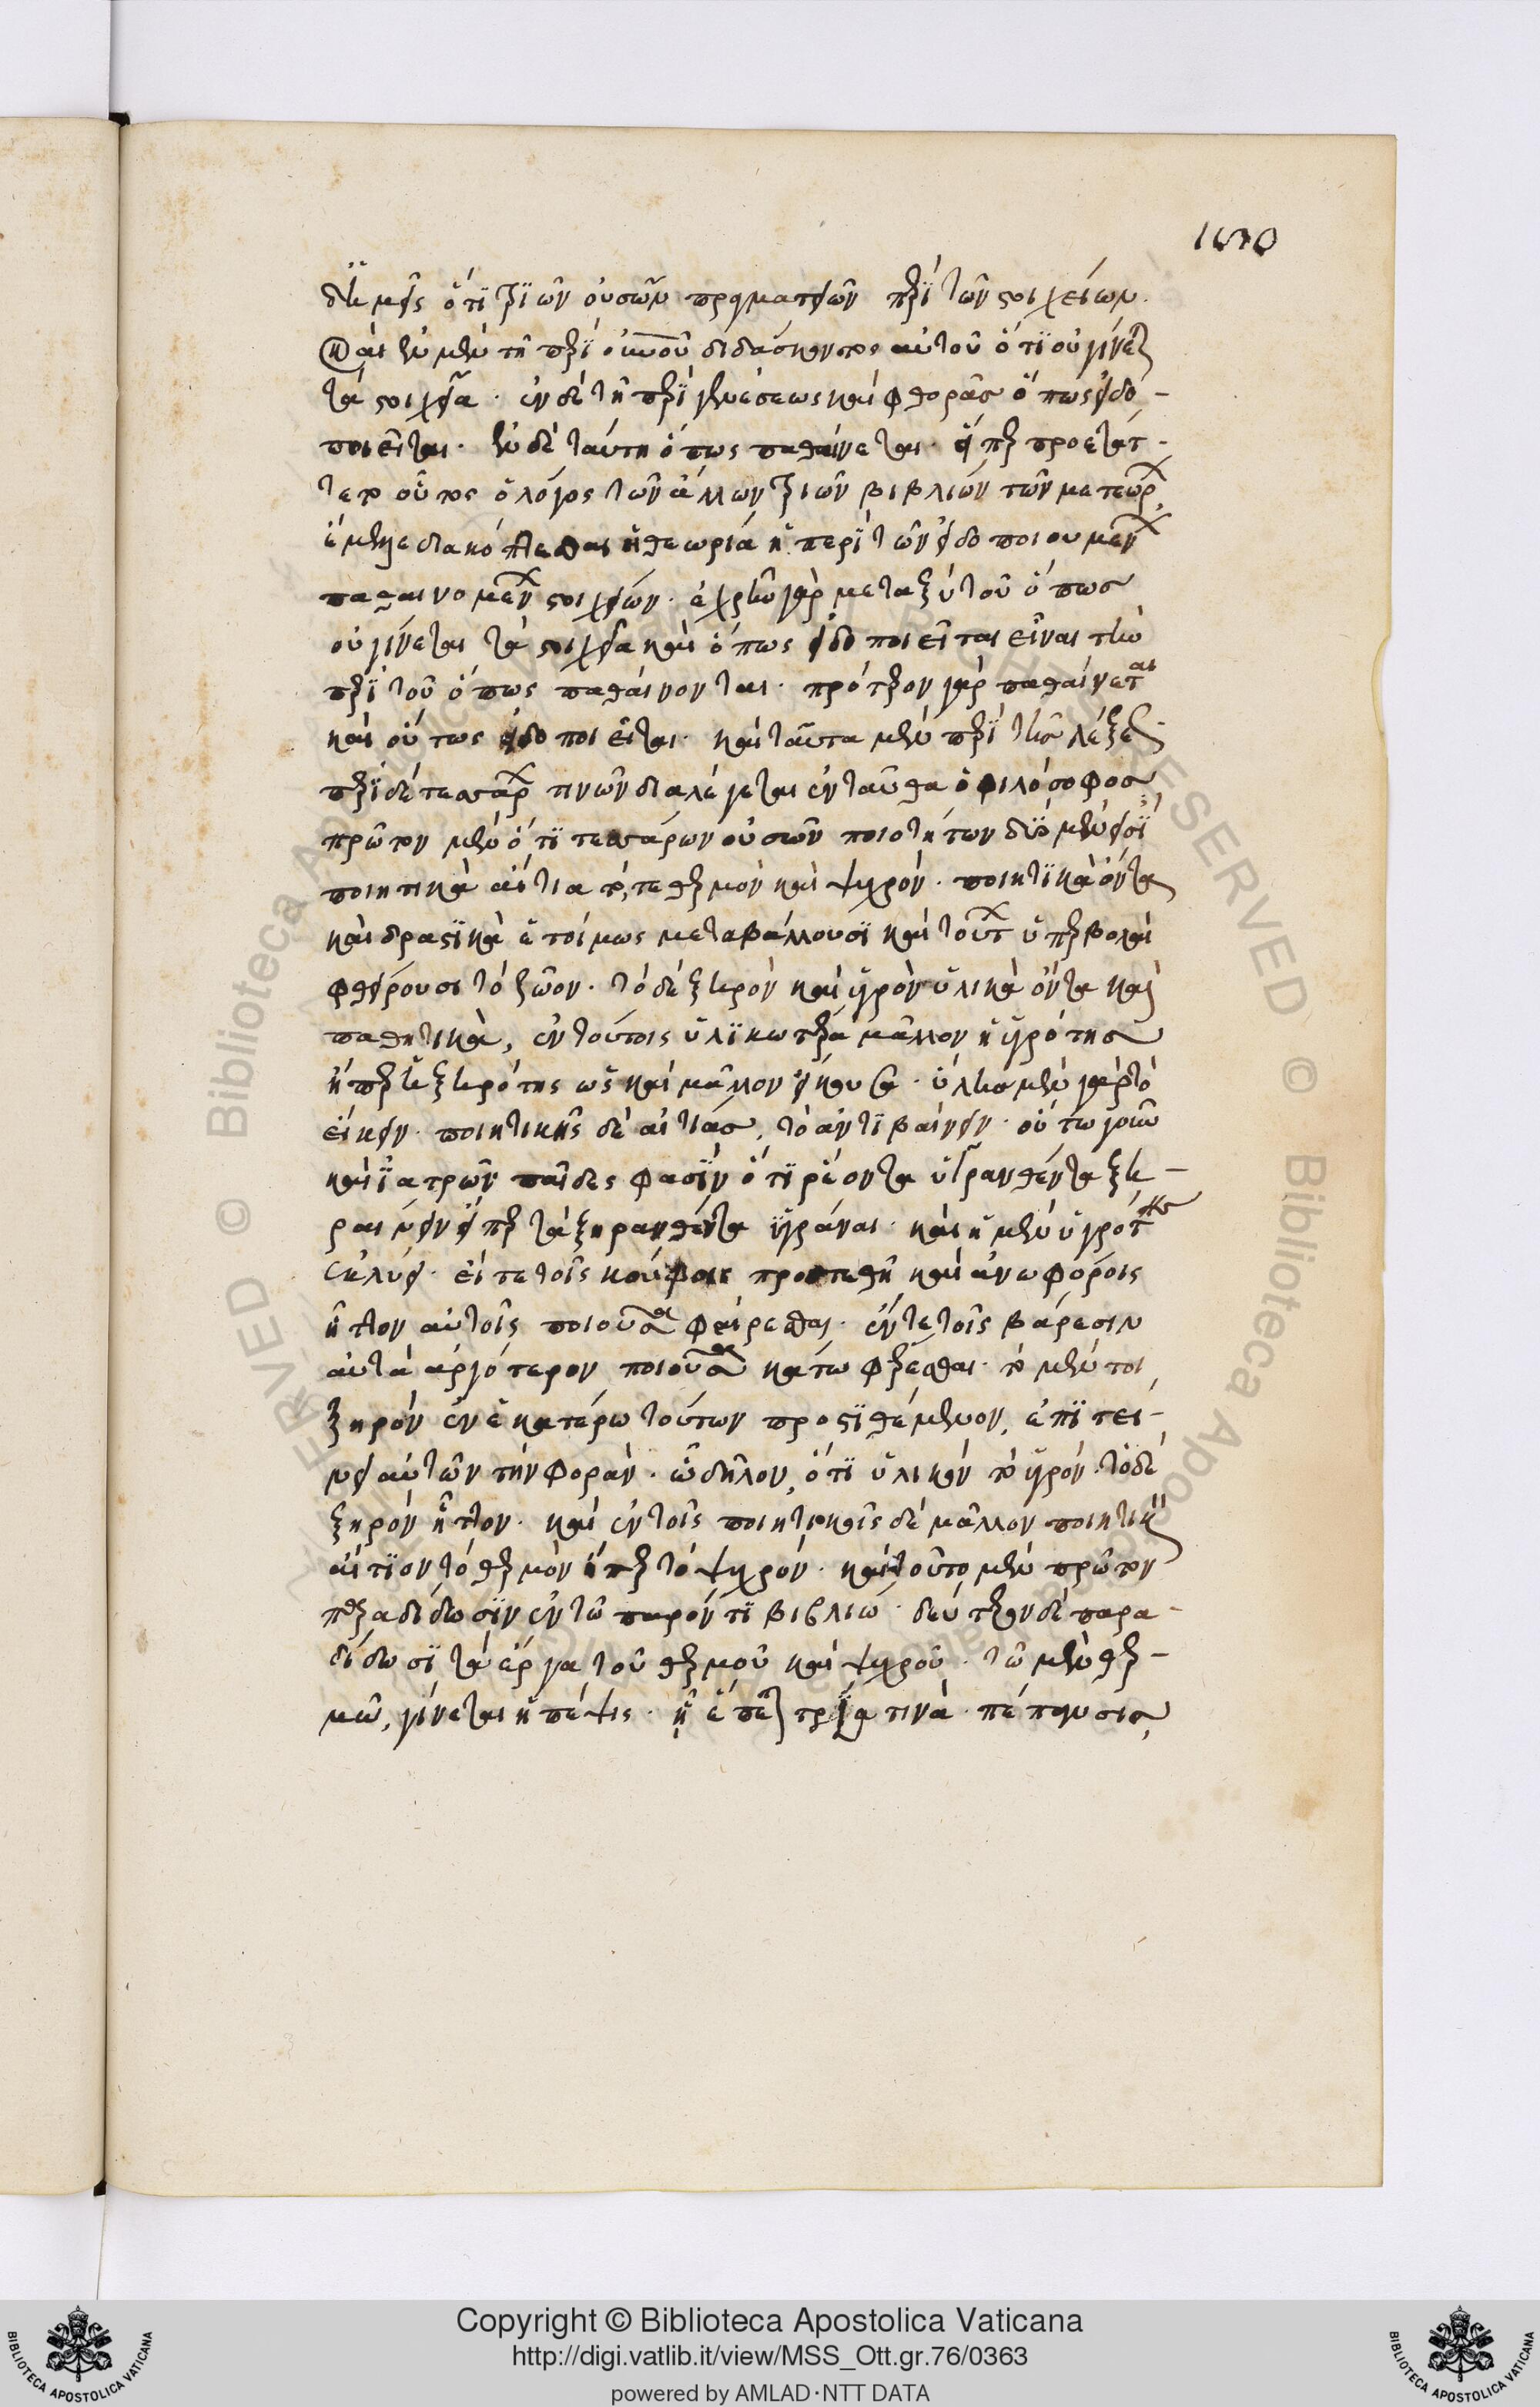 δὲ ἡμεῖς ὅτι τριῶν οὐσῶν πραγματειῶν περὶ τῶν στοιχείων.
καὶ ἐν μὲν τῆ περὶ οὐνοῦ διδάσκοντος αὐτοῦ ὅτι οὐ γίνεται
τὰ στοιχεῖα. ἐν δὲ τῆ περὶ γενέσεως καὶ φθορᾶς ὅπως εἰδο-
ποιεῖται. ἐν δὲ ταύτη ὅπως παθαίνεται. εἴπερ προετάτ-
τετο οὗτος ὁ λόγος τῶν ἄλλων τριῶν βιβλιών τῶν μετεώρων,
ἔμελλε διακόπτεσθαι ἡ θεωρία ἡ περὶ τῶν εἰδοποιουμένων
παθαινομένων στοιχείων. ἐχρῆν γὰρ μεταξὺ τοῦ ὅπως
οὐ γίνεται τὰ στοιχεῖα καὶ ὅπως εἰδοποιεῖται εἶναι τὴν
περὶ τοῦ ὅπως παθαίνονται. πρότερον γὰρ παθαίνεται
καὶ οὕτως εἰδοποιεῖται. καὶ ταῦτα μὲν περὶ τῆς λέξεως
περὶ δὲ τεσσάρων τινῶν διαλέγεται ἐνταῦθα ὁ φιλόσοφος,
πρῶτον μὲν ὅτι τεσσάρων οὐσῶν ποιοτήτων δύο μὲν εἰσὶ
ποιητικὰ αἴτια τό, τε θερμὸν καὶ ψυχρόν. ποιητικὰ ὄντα
καὶ δραστικὰ ἑτοίμως μεταβάλλουσι καὶ τούτων ὑπερβολαὶ
φθείρουσι τὸ ζῶον. τὸ δὲ ξηρὸν καὶ ὑγρὸν ὑλικὰ ὄντα καὶ
παθητικὰ, ἐν τούτοις ὑλικωτέρα μᾶλλον ἡ ὑγρότης
ἤπερ ἡ ξηρότης ὡς καὶ μᾶλλον εἴκουσα. ὕλης μὲν γὰρ τὸ
εἴκειν. ποιητικῆς δὲ αἰτίας, τὸ ἀντιβαίνειν. οὕτω γοῦν
καὶ ἰατρῶν παῖδες φασὶν ὅτι ῥέοντα ὑγρανθέντα ξη-
ραινειν εἴπερ τὰ ξηρανθέντα ὑγράναι. καὶ ἡ μὲν ὑγρότης
ἐκλύει. εἴτε τοῖς κούφοις προστεθῆ καὶ ἀνωφόροις
ἧττον αὐτοῖς ποιοῦσα φαίρεσθαι. ἔντε τοῖς βάρεσιν
αὐτὰ ἀργότερον ποιοῦσα κάτω φέρεσθαι. τὸ μέντοι
ξηρὸν ἐν ἑκατέρω τούτων προστιθέμενον, ἐπιτεί-
νει αὐτῶν τὴν φοράν. ὧ δῆλον, ὅτι ὑλικὸν τὸ ὑγρόν. τὸ δὲ
ξηρὸν ἧττον. καὶ ἐν τοῖς ποιητικοῖς δὲ μᾶλλον ποιητικὸν
αἴτιον τὸ θερμὸν ἤπερ τὸ ψυχρόν. καὶ τοῦτο μὲν πρῶτον
παραδίδωσιν ἐν τῶ παρόντι βιβλίω. δεύτερον δὲ παρα-
δίδωσι τὰ ἔργα τοῦ θερμοῦ καὶ ψυχροῦ. τῶ μὲν θερ-
μῶ, γίνεται ἡ πέψις. ἧ ἕπεται τρία τινὰ. πέπανσις,